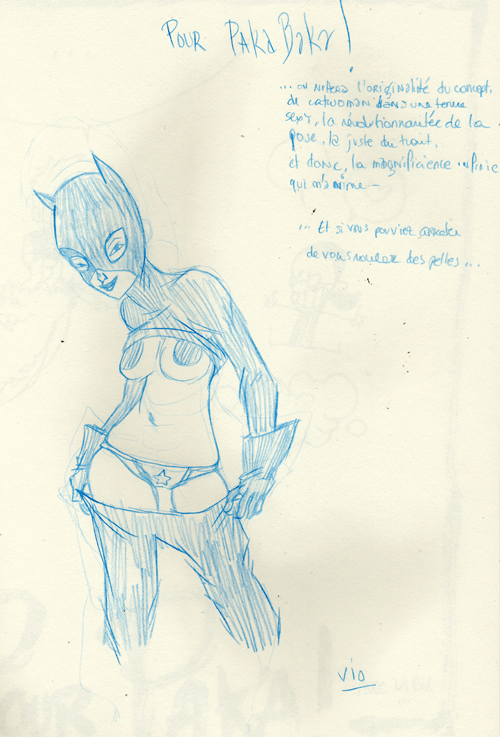 POUR PAKA BAKA !
... on notera l'originalité du concept,
de catwoman dans une tenue
sexy, la révolutionnantée de la
pose, le juste du trait.
et donc, la magnificience infinie
qui m'anime -
... Et si vous pouviez
de vous rouler des pelles ...
vio